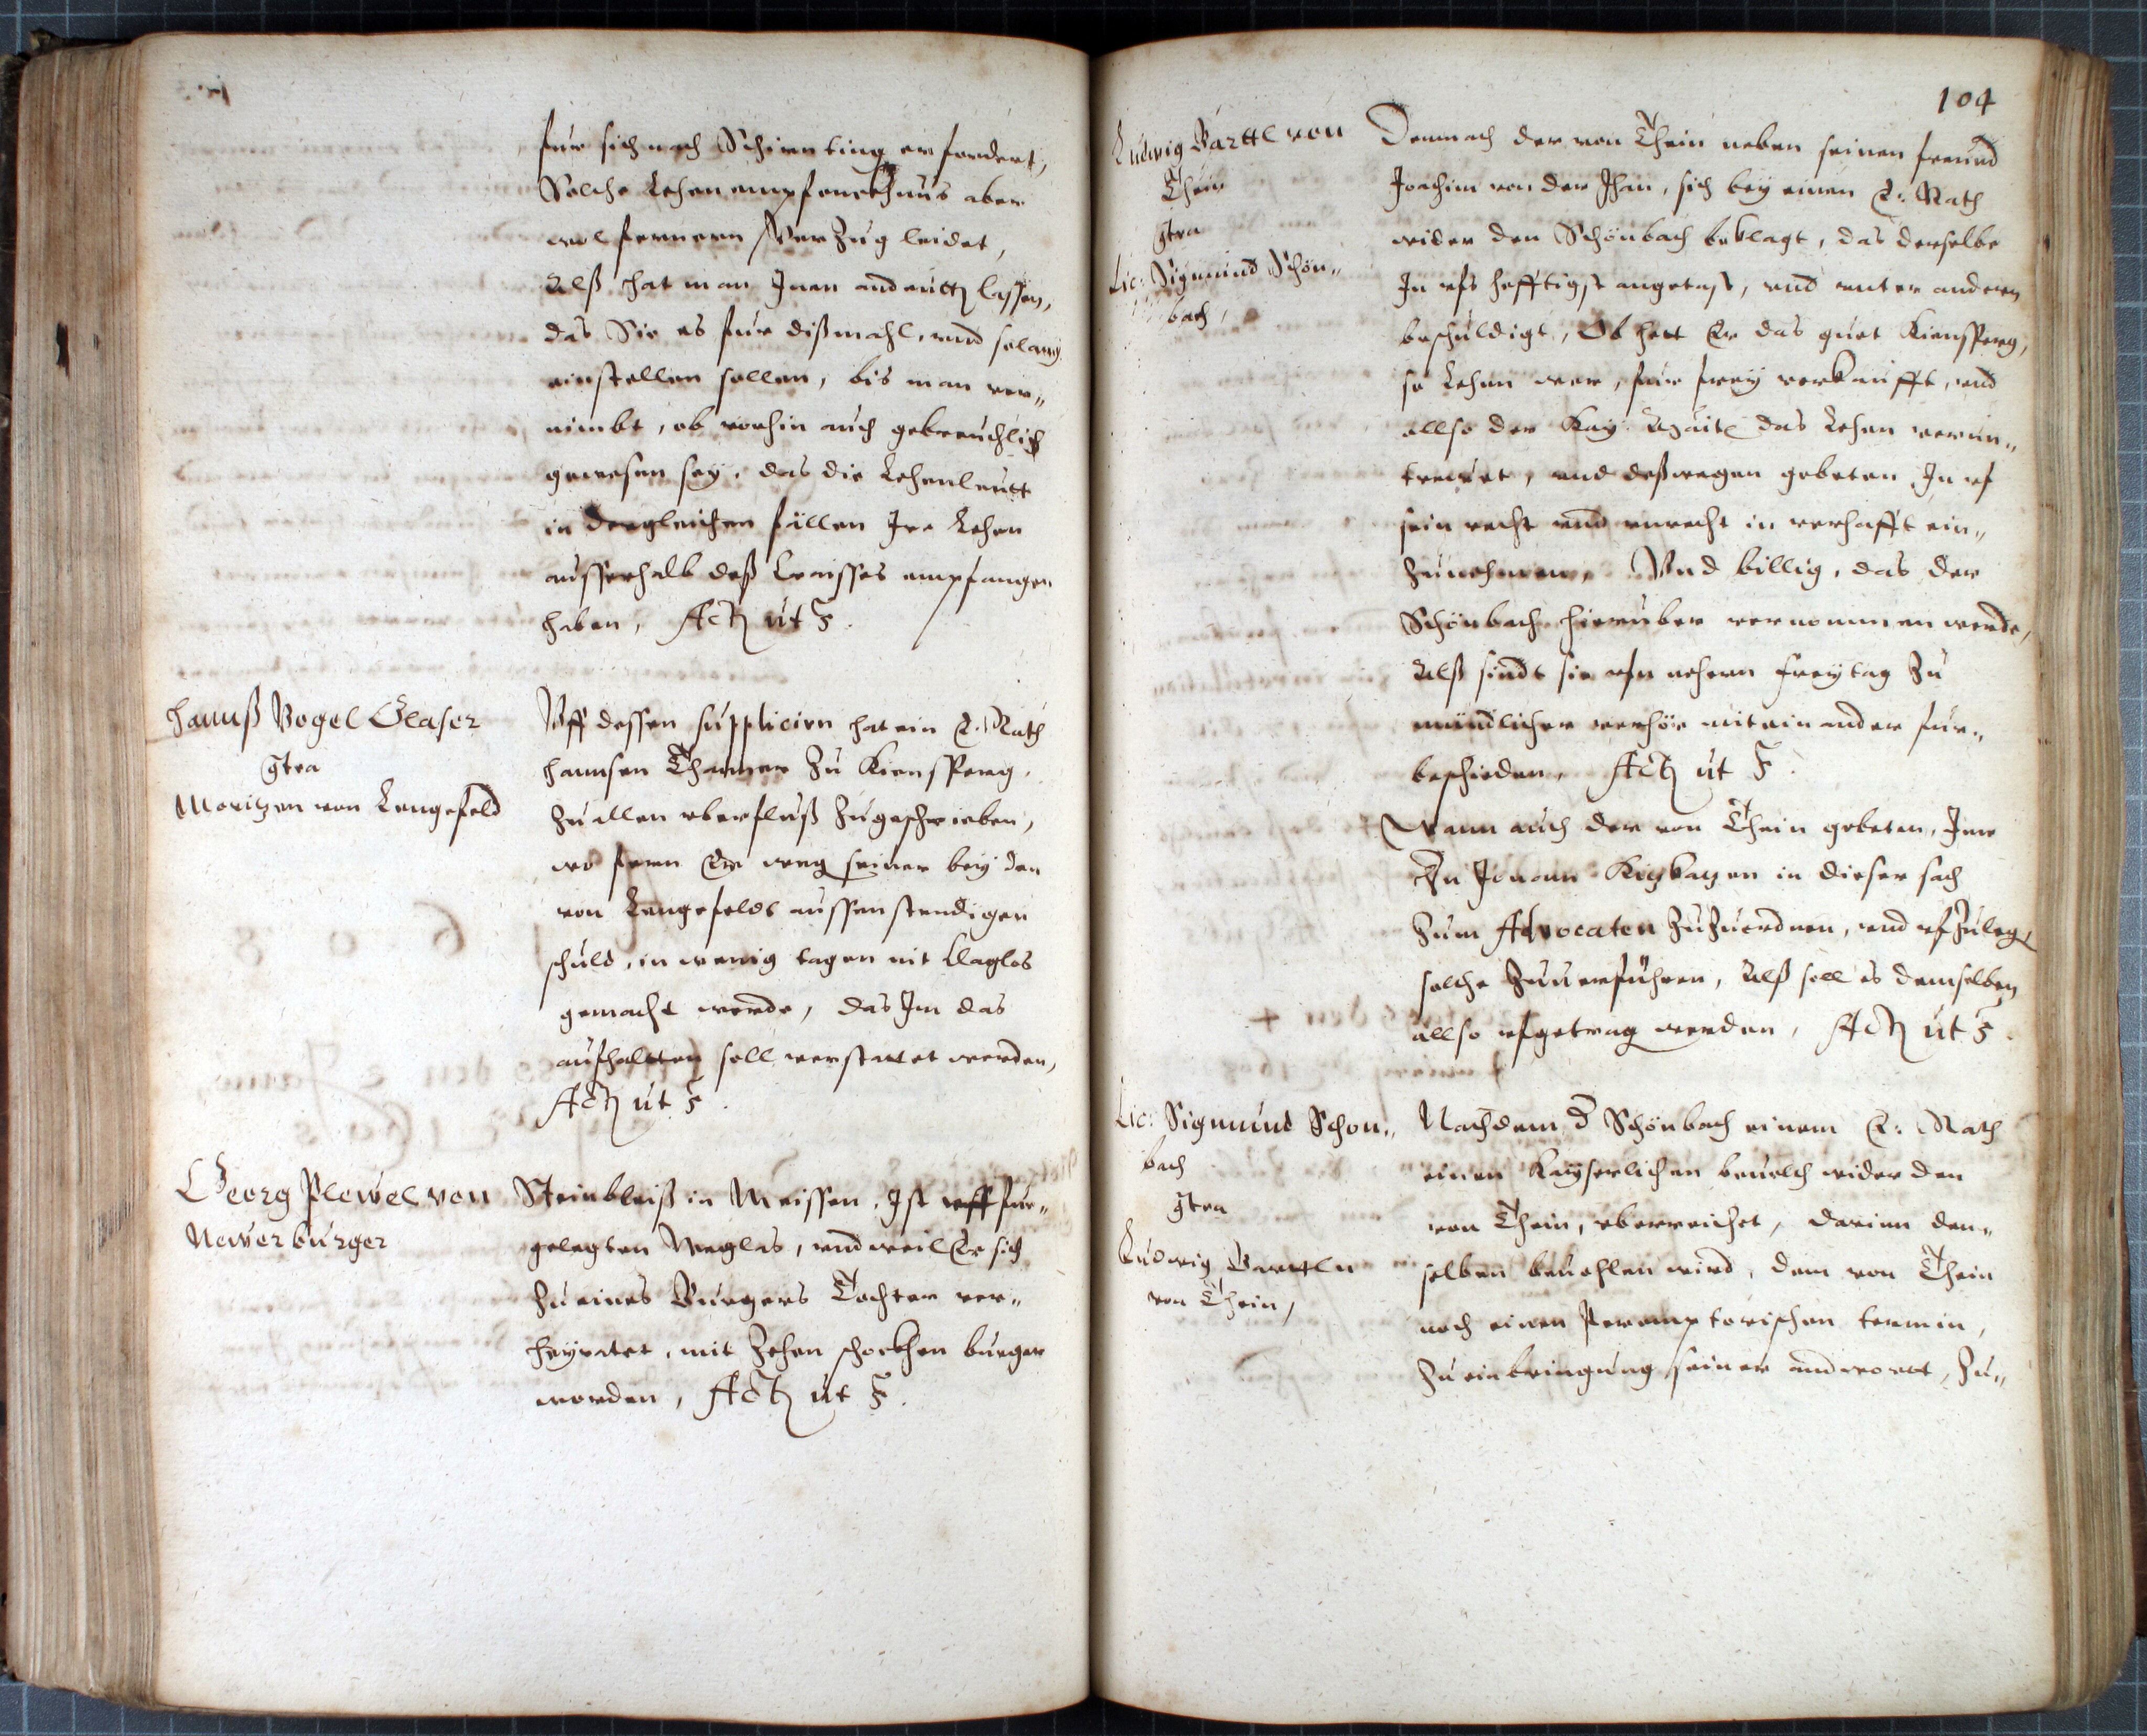 fur sich nach Schirnting erfordert,
Solche Lehenempfencknus aber
wol fernern Verzug leidet,
Alß hat man Inen andeutten lassen,
das Sie es fur dißmahl, und solang
einstellen sollen, bis man ver„
nimbt, ob vorhin auch gebreuchlich
gewesen sey, das die Lehenleutt
in dergleichen fällen Ire Lehen
ausserhalb deß Craisses empfangen
haben, Act ut s.
Hannß Vogel Glaser
gtra
Moritzen von Lengefeld
Uff dessen suppliciren hat ein E. Rath
Hannsen Thanner zu Kiensperg,
zu allen uberfluß zugeschrieben,
wo fern Er weg seiner bey den
von Lengefeldt aussenstendigen
schuld, in wenig tagen nit klaglos
gemacht werde, das Im das
aufhaltten soll verstattet werden,
Act ut s.
Georg Plewel von
Newer burger
Steinbleiß in Meissen, Ist uff fur„
gelegten, und weil Er sich
zu eines Burgers Tochter ver„
heyratet, mit Zehen schockhen burger
worden, Act ut s.
104
Ludwig Barttl von
Thein
gtra
Lic: Sigmund Schön„
bach,
Demnach der von Thein neben seinen freund
Joachim von der Than, sich bey einen E: Rath
wider den Schönbach beklagt, das derselbe
In ufs hefftigst angetast, und unter anderen
beschuldigt, Ob hett Er das guet Kiensperg,
so Lehen wer, fur frey verkaufft, und
allso der Kay: Mait das Lehen verun„
trewet, und deßwegen gebeten In uf
sein recht und unrecht in verhafft ein„
zunehmen, Und billig, das der
Schönbach hieruber vernommen werde,
Alß sindt sie ufn nehern Freytag zu
mündlicher verhör miteinander fur„
beschieden, Act ut s.
Wann auch der von Thein gebeten, Ime
Johann in dieser sach
zum Advocaten zuzuordnen, und ufzuleg
solche zuverführen, Alß soll es demselben
allso ufgetrag werden, Act ut s.
Lic: Sigmund Schon„
bach
gtra
Ludwig Barttln
von Thein,
Nachdem d Schönbach einem E: Rath
einen Kayserlichen bevelch wider den
von Thein, uberreichet, darinn den„
selben bevohlen wird, dem von Thein
noch einen Peremptorischen termin,
zu einbringung seiner andwortt, zu„